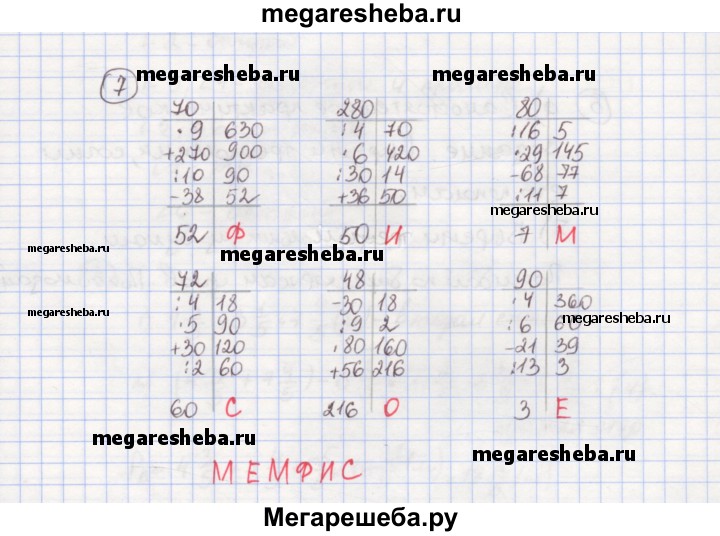 megaresheba.ru
7
megaresheba.ru megaresheba.ru
70 280 80
·9 630 :4 70 :16 5
+270 900 ·6 420 ·29 145
:10 90 :30 14 -68 77
-38 52 +36 50 :11 7
megaresheba.ru
52 Ф 50 И 7 М
megaresheba.ru megaresheba.ru
72 48 90
:4 18 -30 18 ·4 360
megaresheba.ru
·5 90 :9 2 :6 60
megaresheba.ru
+30 120 ·80 160 -21 39
:2 60 +56 216 :13 3
60 С 216 О 3 Е
megaresheba.ru megaresheba.ru
МЕМФИС
Мегарешеба.ру